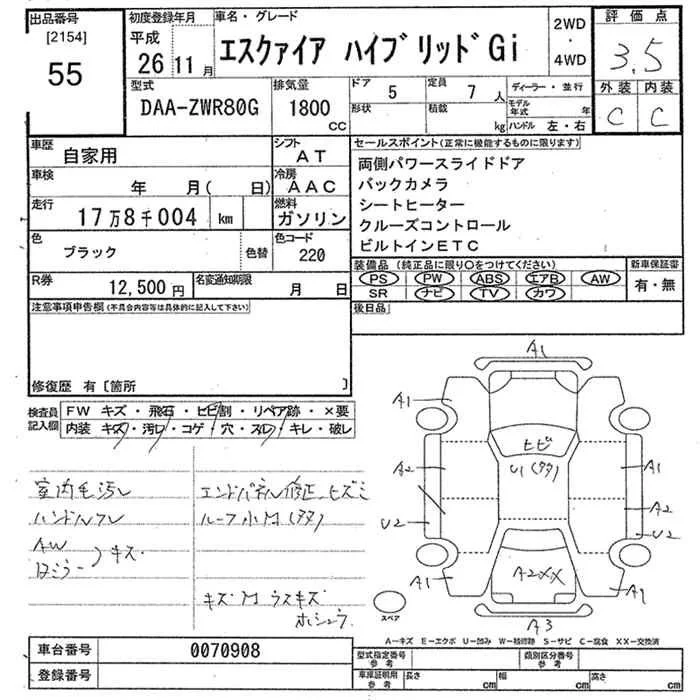 出品番号 初度登録年月 車名・グレード 評価点
[2154] 平成
55 26年11月 エスクァイア ハイブリッドGi 2WD・4WD 3.5
型式 排気量 ドア 5 定員 7人 ディーラー・並行 外装 内装
DAA-ZWR80G 1800cc 形状 積載 kg モデル年式 年 C C
ハンドル 左・右
車歴 自家用 シフト AT セールスポイント(正常に機能するものに限ります)
車検 年 月( 日) 冷房 AAC 両側パワースライドドア
走行 17万8千004 km 燃料 ガソリン バックカメラ
シートヒーター
色 ブラック 色替 色コード 220 クルーズコントロール
ビルトインETC
R券 12,500円 名変通知期限 月 日 装備品(純正品に限り○をつけてください) 新車保証書
PS PW ABS エアB AW 有・無
SR ナビ TV カワ
注意事項申告欄(不具合内容等は具体的に記入して下さい) 後日品
修復歴 有[箇所 ]
検査員記入欄 FW キズ・飛石・ヒビ割・リペア跡・×要
内装 キズ・汚レ・コゲ・穴・スレ・キレ・破レ
室内毛汚レ エンドパネル修正 ヒズミ
ハンドルスレ ルーフ小凹(タタ)
AW
ロミラー )キズ・
キズ凹ラスキズ
ホシュウ
A1
A1 A1
ヒビ
A2 U1(タタ) A1
A2
U2 U2
A1 A2XX A1
スペア A3
A－キズ E－エクボ U－凹み W－補修跡 S－サビ C－腐食 XX－交換済
車台番号 0070908 型式指定番号 参考 類別区分番号 参考
登録番号 車庫証明用 参考 長さ cm 幅 cm 高さ cm